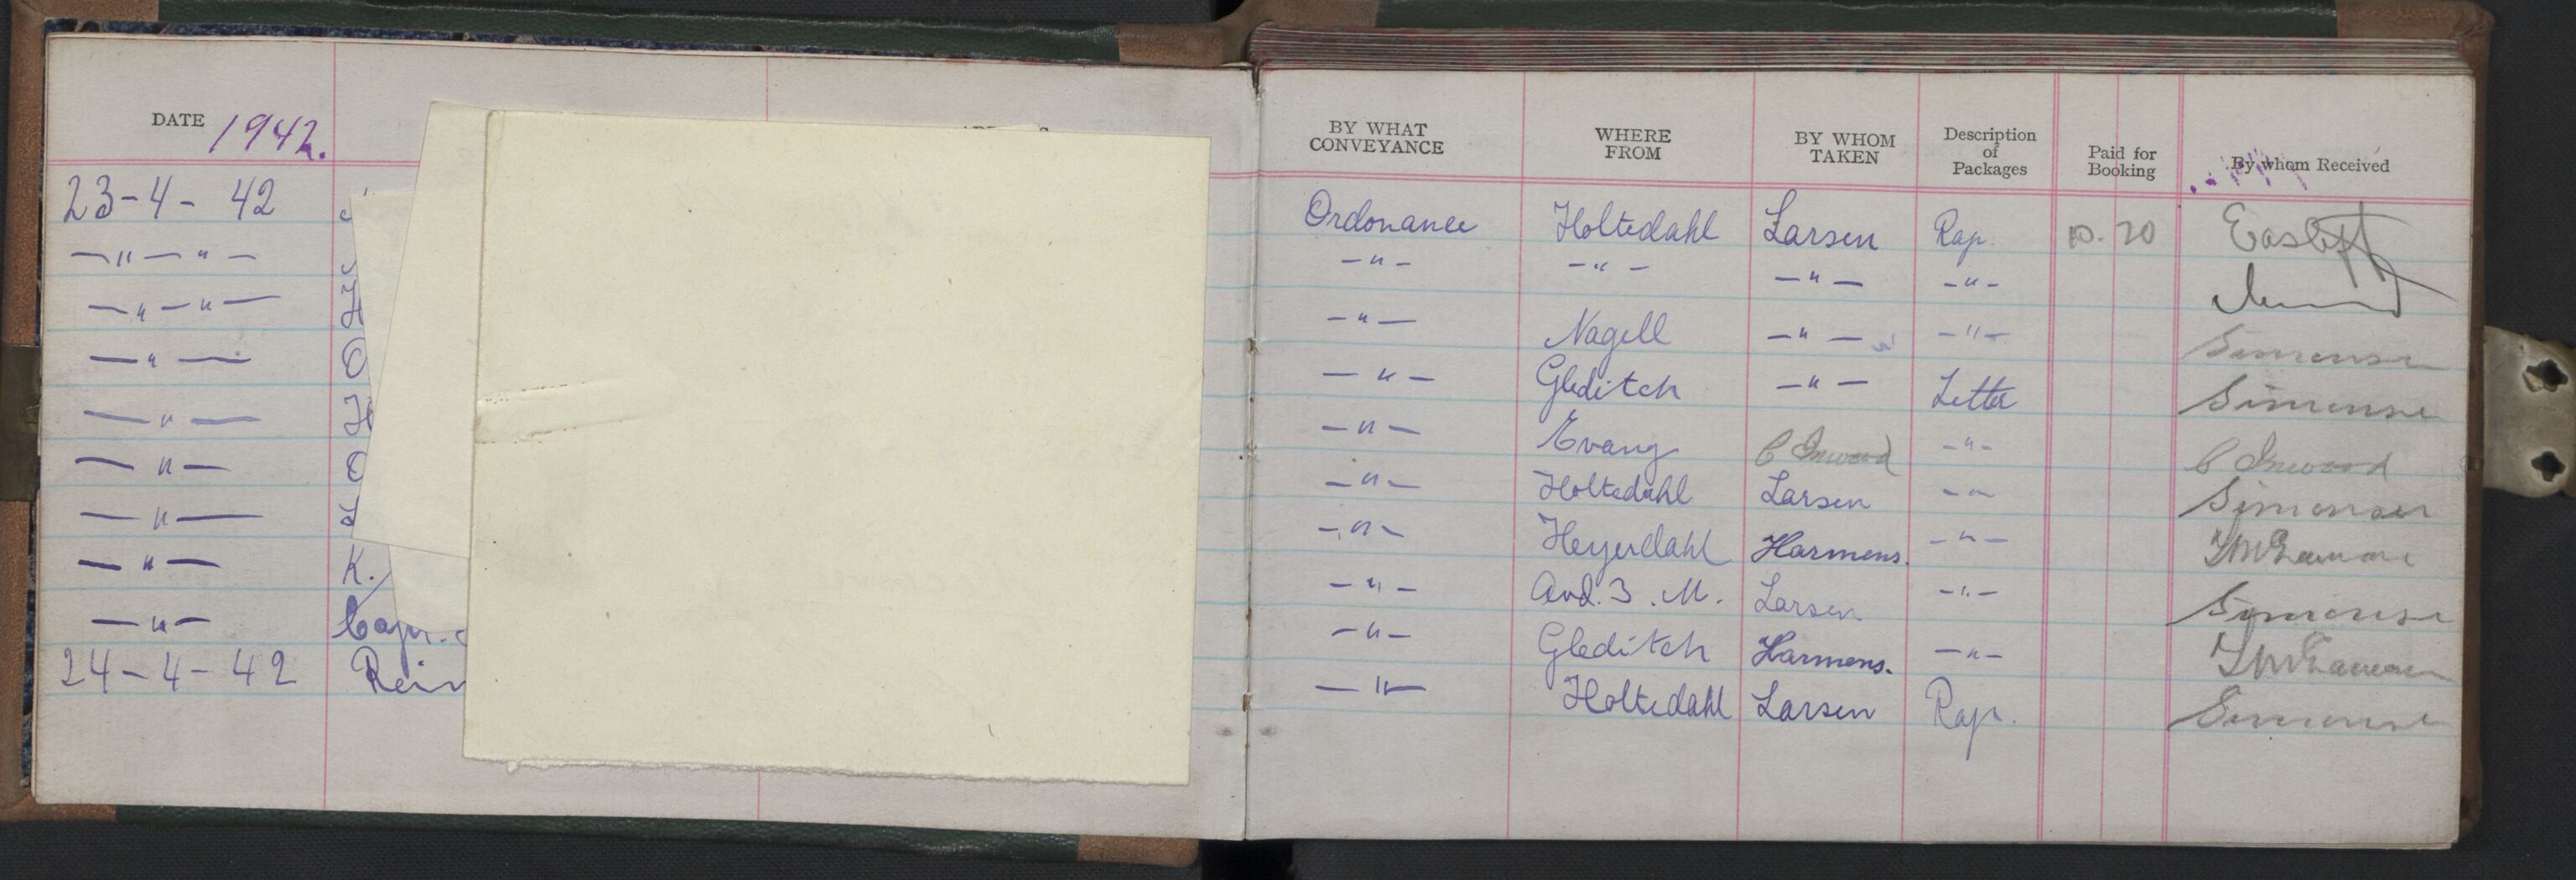 DATE 1942.
BY WHAT CONVEYANCE
WHERE FROM
BY WHOM TAKEN
Description of Packages
Paid for Booking
By whom Received
23-4-42 Ordonance Holtedahl Larsen Rap. 10.20
—"—"— —"— —"— —"— —"—
—"—"— H —"— Nagell —"— —"— Simensen
—"— O —"— Gleditch —"— Letter Simensen
—"— H —"— Evang C Inwood —"— C Inwood
—"— O —"— Holtedahl Larsen —"— Simensen
—"— —"— Heyerdahl Harmens. —"—
—"— K. —"— Avd. 3. M. Larsen —"— Simensen
—"— Capt. —"— Gleditch Harmens. —"—
24-4-42 Rein —"— Holtedahl Larsen Rap. Simensen